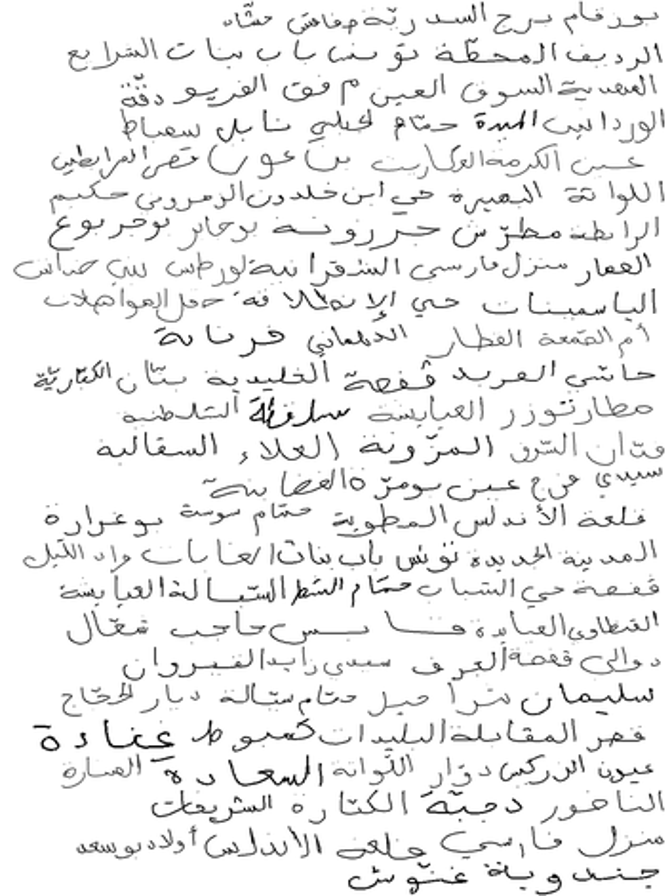 بوزقام برج السدريّة صفاقس مشّاد
الرديف المحطّة تونس باب بنات الشرايع
المهدية السوق العين م فق الفريو دقّة
الوردانين البدة حمّام الجبلي نابل سمباط
عين الكرمة العكاريت بن عون قصر المرابطين
اللواتة البصيرة حي ابن خلدون الزمروني حكيم
الرابطة مطرّش حزّونة بوجابر بوجربوع
العقار منزل فارسي الشقرانية بني حسان
الياسمينات حي الإنطلاقة حفل المواصلات
أم القمعة القطار الدهماني فرنانة
حاسي الفريد قفصة الخليدية بتّان الكتاريّة
مطار توزر العبابسة الشلطنية
فتان الشرق المزّونة العلاء السقالبة
سيدي فرج عين بومرّة الغضابنة
قلعة الأندلس المطوية حمّام سوسة بوغرارة
المدينة الجديدة تونس باب بنات الغابات واد اللّيل
قفصة حي الشباب حمّام الشط الشبالة العبابسة
القطاوي العبابدة قابس حاجب
دوالي قفصة العرف سيدي زايد القيروان
سليمان حمّام ديار الحجّاج
قصر المقابلة البليدات كمبوط غنادة
عيون الزركين دوّار اللّواتة السعادة المنارة
الناظور دجبّة الكتارة الشريفات
منزل فارسي قلعة الأندلس أولاد بوسعد
جندوبة غنّوش